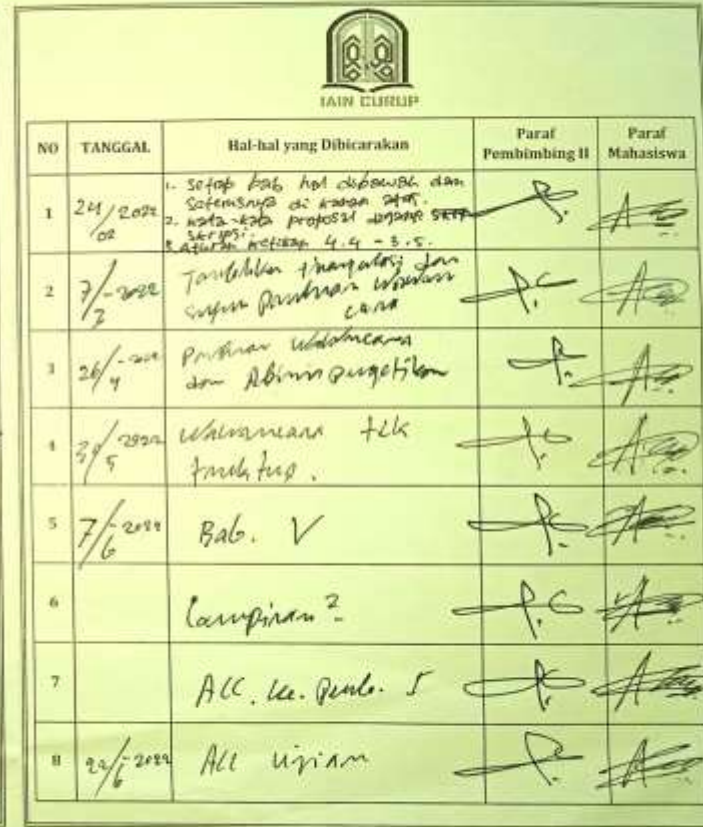 IAIN CURUP
NO TANGGAL Hal-hal yang Dibicarakan Paraf Pembimbing II Paraf Mahasiswa
1 24/02 2022 1. setiap bab hal dibawah dan
seterusnya di kanan atas.
2. kata-kata proposal diganti
skripsi.
3. Aturan ketikan 4.4 - 3.5.
2 7/ -2022 dan
panduan
3 26/4 Panduan wawancara
dan
4 5 2022 Wawancara
5 7/6 -2022 Bab. V
6 Lampiran 2
7 ACC. ke. Pemb. I
8 22/6 -2022 ACC Ujian